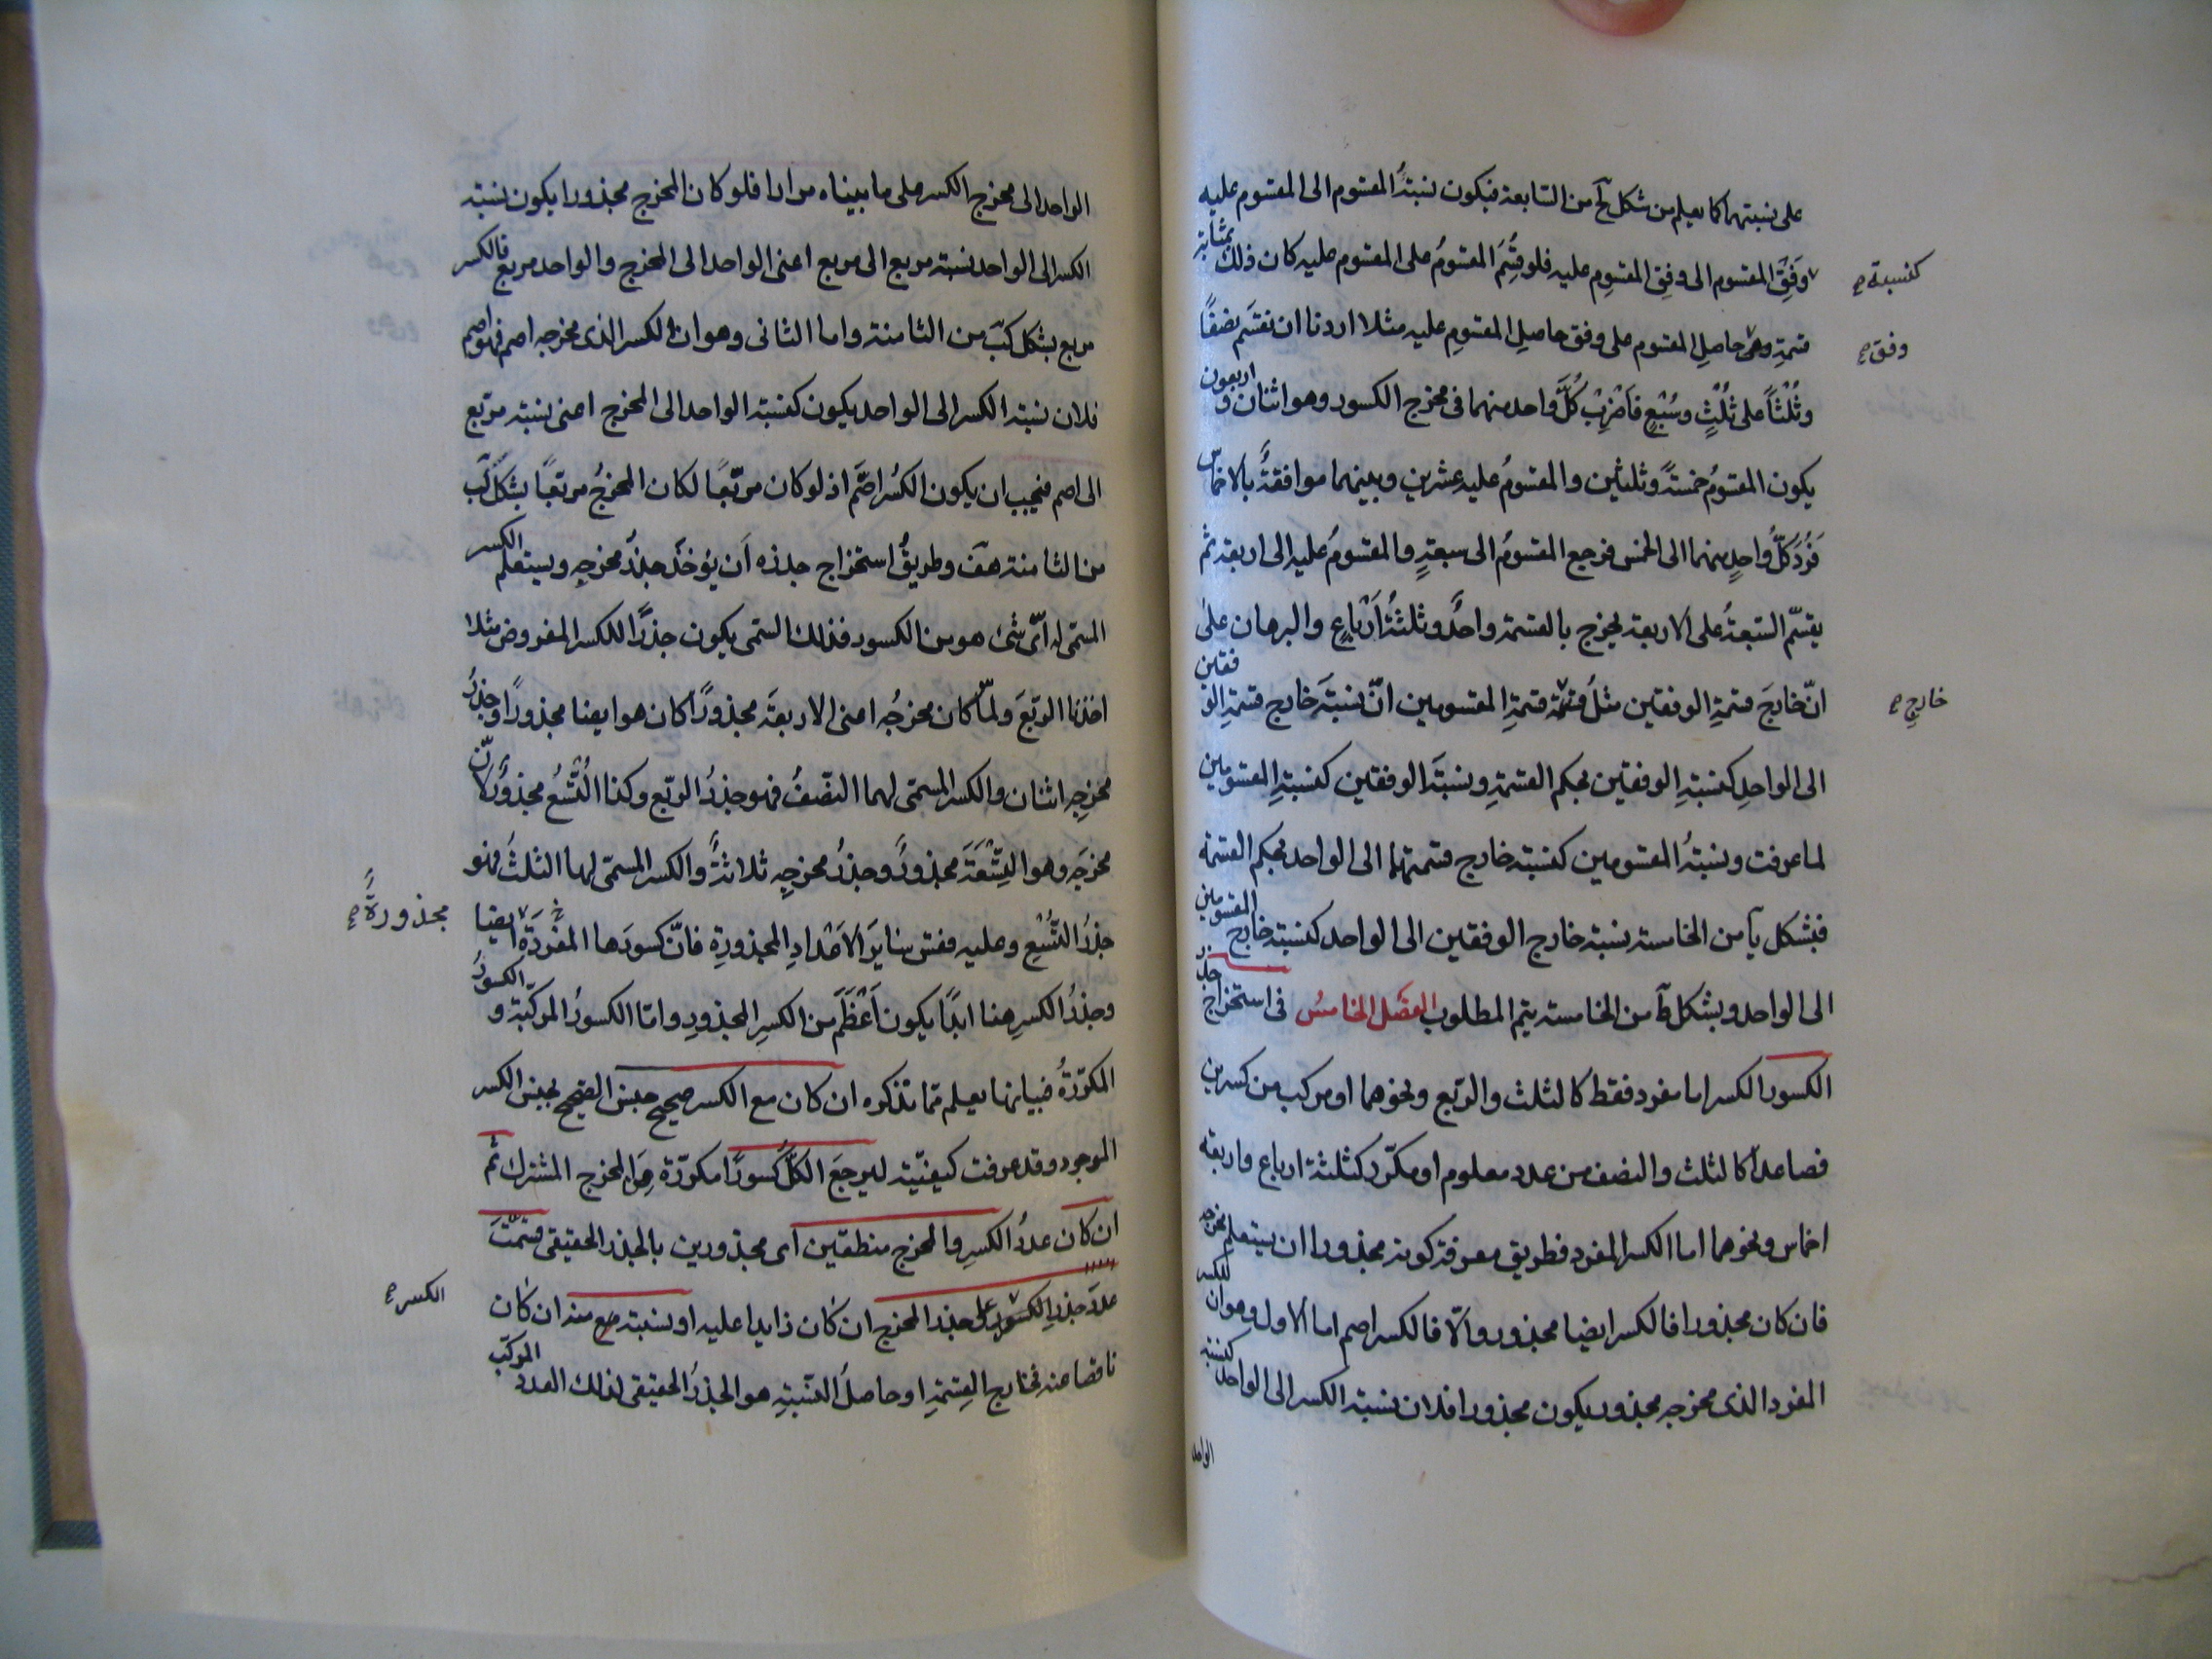 على نسبتهما كما يعلم من شكل يح من السابعة فيكون نسبةُ المقسوم الى المقسوم عليه
وَفقِ المقسوم الى وفِق المقسوم عليه فلو قُسِمَ المقسومُ على المقسوم عليه كان ذلك بمثابة
كنسبة صح
قسمةِ وهى حاصلِ المقسوم على وفق حاصلِ المقسومِ عليه مثلا اردنا ان نقسَم نصفًا
وفق صح
وثُلثًا على ثُلثٍ وسُبْعٍ فَاضْرِبْ كُلَّ واحد منهما فى مخرج الكسور وهو اثنان و اربعون
يكون المقسومُ خمسةً وثلثين والمقسومُ عليه عشرين وبينهما موافقةٌ بالاخماس
فَرُدَّ كلَّ واحدٍ منهما الى الخمس فرجع المقسومُ الى سبعةٍ والمقسومُ عليه الى اربعة ثم
يقسّم السّبعةُ على الاربعة يخرج بالقسمة واحدٌ وثلثةُ اَرْباعٍ والبرهان علىٰ
انّ خارجَ قسمةِ الوفقين مثلُ قسمةِ المقسومين انّ نسبَةَ خارج قسمةِ الوفقين
خارجِ صح
الى الواحدِ كنسبةِ الوفقين بحكم القسمةِ ونسبَةَ الوفقين كنسبةِ المقسومين
لما عرفت ونسبةُ المقسومين كنسبة خارج قسمتهما الى الواحد بحكم القسمة
فبشكل يآ من الخامسة نسبة خارج الوفقين الى الواحد كنسبة خارج المقسومين
الى الواحد وبشكل ط من الخامسة يتم المطلوب الفصَل الخامسُ فى استخراج جذر
الكسور الكسر اما مفرد فقط كالثلث والربع ونحوهما او مركب من كسرين
فصاعدًا كالثلث والنصف من عدد معلوم او مكرّر كثلثة ارباع واربعة
اخماس ونحوهما اما الكسر المفرد فطريق معرفة كونه مجذورا ان يستعلم مخرجه
فان كان مجذورا فالكسر ايضا مجذور والّا فالكسر اصم اما الاول وهو ان الكسر
المفرد الذى مخرجه مجذور يكون مجذورا فلان نسبة الكسر الى الواحد كنسبة
الواحد
الواحد الى مخرج الكسر على ما بيناه مرارا فلو كان المخرج مجذورا يكون نسبة
الكسر الى الواحد نسبة مربع الى مربع اعنى الواحد الى المخرج والواحد مربع فالكسر
مربع بشكل كب من الثامنة واما الثانى وهو ان الكسر الذى مخرجه اصم فهو اصم
فلان نسبة الكسر الى الواحد يكون كنسبة الواحد الى المخرج اعنى نسبة مربّع
الى اصم فيجب ان يكون الكسُر اصَّم اذ لو كان مربّعًا لكان المخرجُ مربّعًا بشكل كب
من الثامنة هف وطريقُ استخراج جذره اَن يؤخذَ جذرُ مخرجهِ ويستعلم الكسر
المسمّى له اىّ شئ هو من الكسور فذلك المسمى يكون جذرًا للكسر المفروض مثلا
اخذنا الربّعَ ولمّا كان مخرجُه اعنى الاربعةَ مجذورًا كان هو ايضا مجذورًا وجذرُ
مخرجِه اثنان والكسر المسمّى لهما النصّفُ فهو جذرُ الربّع وكذا التُّسْعُ مجذورٌ لانّ
مخرجَه وهو التِّسْعَةَ مجذورٌ وجذرُ مخرجِه ثلاثةٌ والكسر المسمّى لها الثلثُ فهو
جذرُ التُّسْعِ وعليه فقس سائرَ الاَعْدادِ المجذورةِ فانّ كسورَها المفْردَةَ ايضا
مجذورةٌ صح
وجذرُ الكسرِ هنا ابدًا يكون اَعْظَمَ من الكسرِ المجذورِ وامّا الكسورُ المركّبة و الكسورُ
المكرّرةُ فبيانها يعلم ممّا نذكره ان كان مع الكسر صحيح جنس الصّحيح بجنس الكسر
الموجود وقد عرفت كيفيّته ليرجعَ الكلُّ كسورًا مكررّة من المخرج المشترك ثم
ان كان عددُ الكسرِ والمخرج منطقين اى مجذورين بالجذر الحقيقى قسّمتَ
عددَ جذرِ الكسور على جذر المخرج ان كان زايدا عليه او نسبته مع منه ان كان
الكسر صح
ناقصا عنه فخارج القِسمةِ او حاصلُ النّسبةِ هو الجذرُ الحقيقى لذلك العدد المركّب